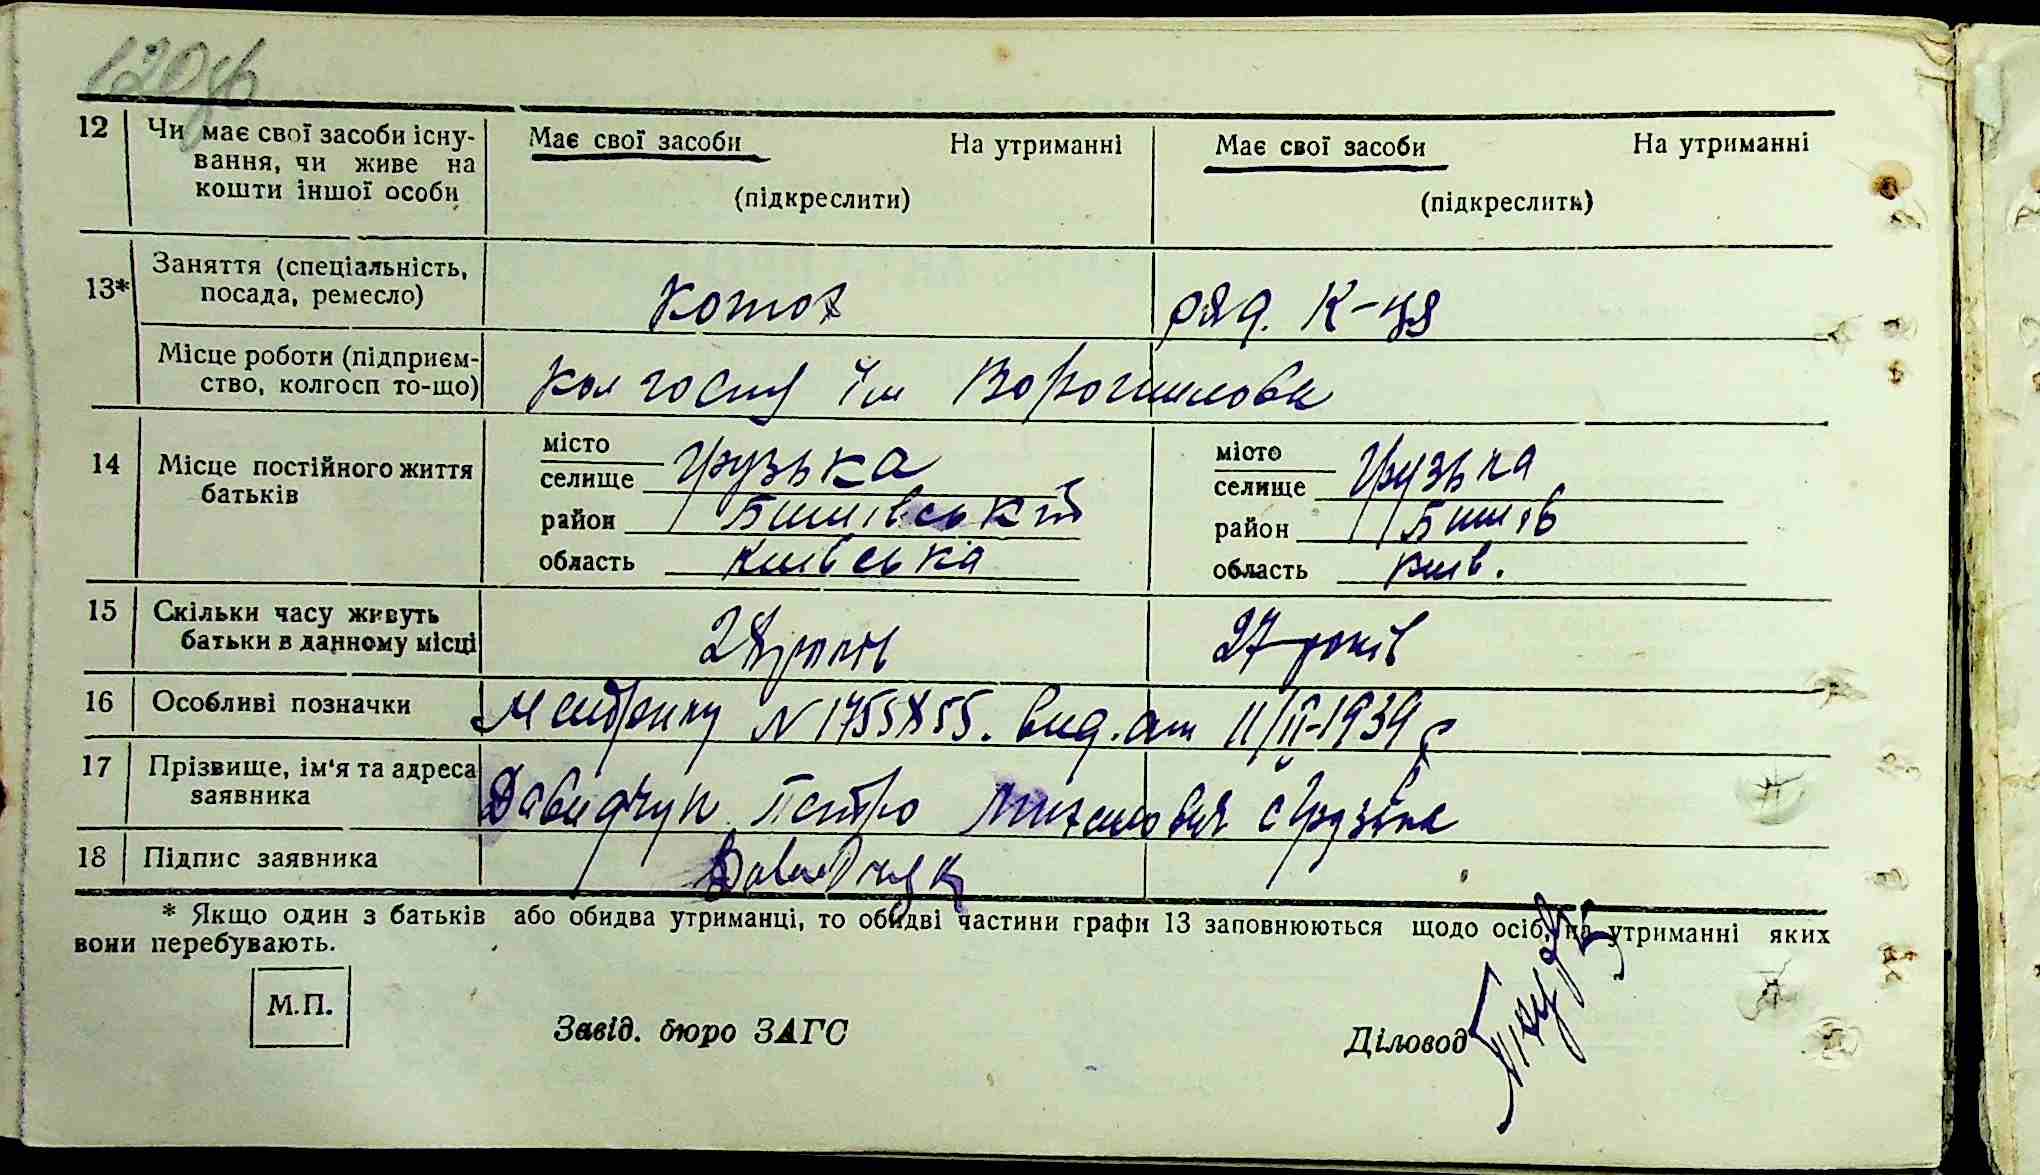 120
12 Чи має свої засоби існу- Має свої засоби На утриманні Має свої засоби На утриманні
вання, чи живе на
кошти іншої особи (підкреслити) (підкреслити)
13* Заняття (спеціальність,
посада, ремесло) ряд. К-ця
Місце роботи (підприєм-
ство, колгосп то-що) колгоспу ім Ворошилова
14 Місце постійного життя
батьків
місто
селище Грузька
район Бишівський
область київська
місто
селище Грузька
район Бишів
область київ.
15 Скільки часу живуть
батьки в данному місці 28 років 27 років
16 Особливі позначки Метрику N вид. 11/II-1939 р
17 Прізвище, ім'я та адреса
заявника Давидчук Петро с Грузька
18 Підпис заявника Давидчук
* Якщо один з батьків або обидва утриманці, то обидві частини графи 13 заповнюються щодо осіб, на утриманні яких
вони перебувають.
М.П.
Завід. бюро ЗАГС Діловод